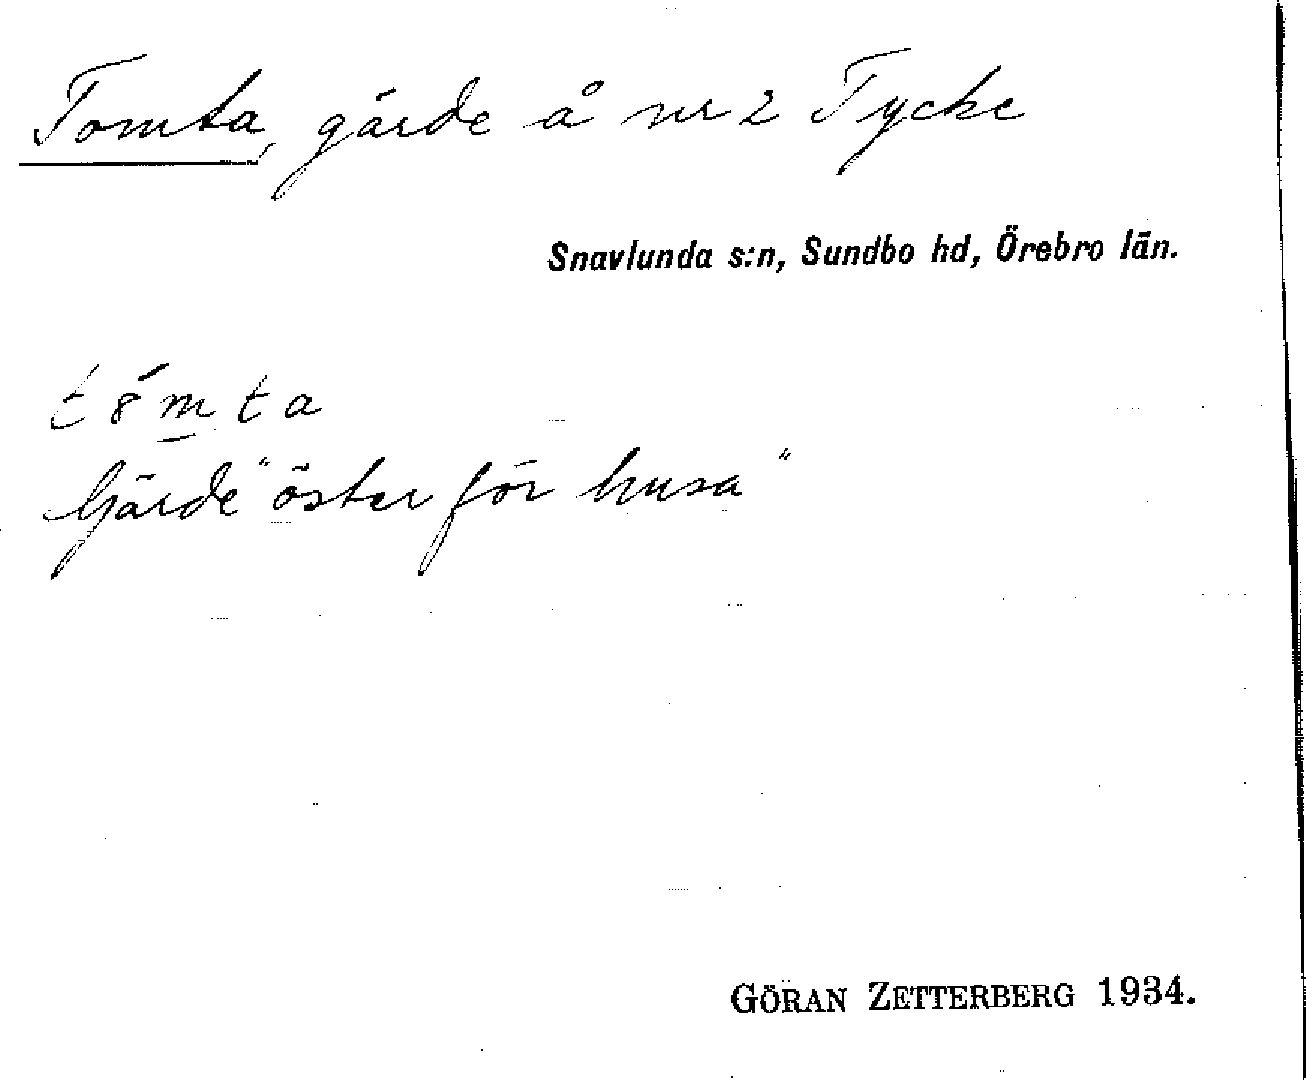 Tomta, gärde å nr 2 Tycke
Snavlunda s:n, Sundbo hd, Örebro län.
Gärde "öster för husa"
GÖRAN ZETTERBERG 1934.